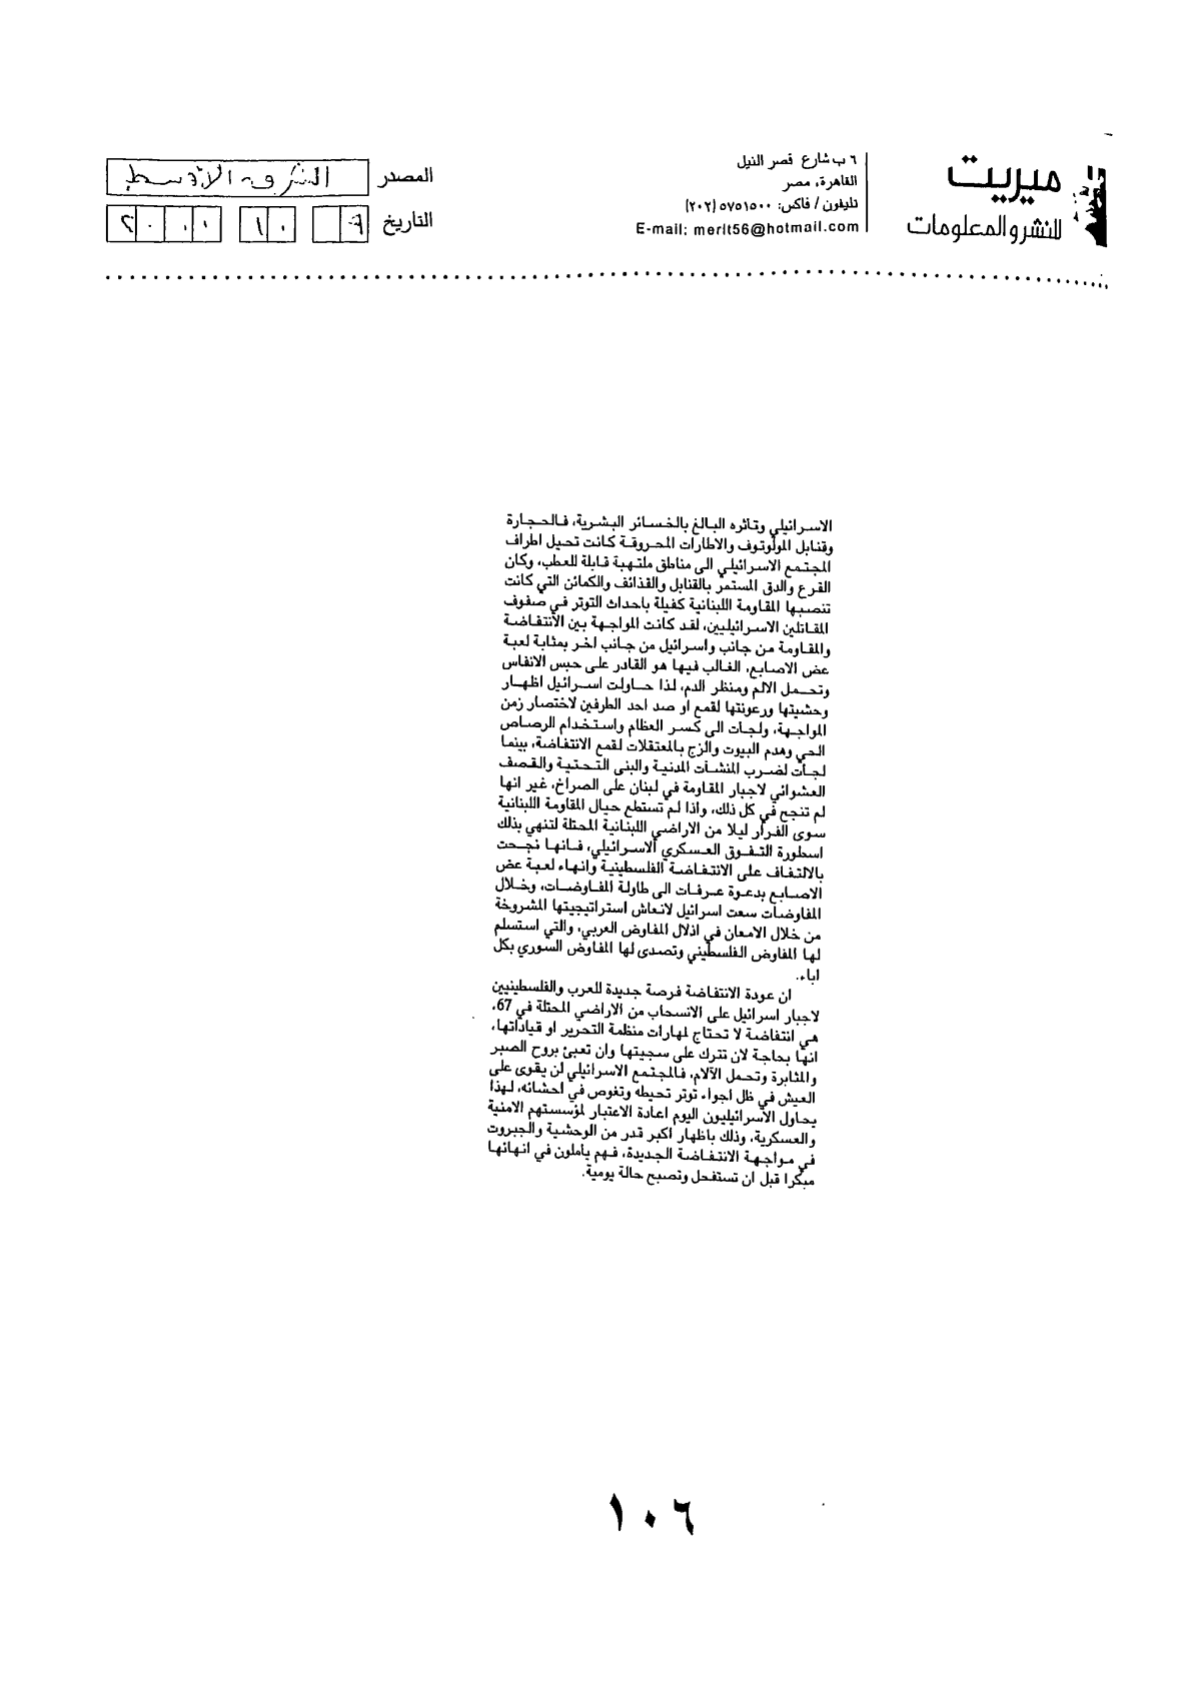 ميريت
للنشر والمعلومات
٦ ب شارع قصر النيل
القاهرة، مصر
تليفون / فاكس: ٥٧٥١٥٠٠ (٢٠٢)
E-mail: merit56@hotmail.com
المصدر الشرق الأوسط
التاريخ ٦ ١٠ ٢٠٠٠
الاسرائيلي وتاثره البالغ بالخسائر البشرية، فالحجارة
وقنابل المولوتوف والاطارات المحروقة كانت تحيل اطراف
المجتمع الاسرائيلي الى مناطق ملتهبة قابلة للعطب، وكان
القرع والدق المستمر بالقنابل والقذائف والكمائن التي كانت
تنصبها المقاومة اللبنانية كفيلة باحداث التوتر في صفوف
المقاتلين الاسرائيليين، لقد كانت المواجهة بين الأنتفاضة
والمقاومة من جانب واسرائيل من جانب اخر بمثابة لعبة
عض الاصابع، الغالب فيها هو القادر على حبس الانفاس
وتحمل الالم ومنظر الدم، لذا حاولت اسرائيل اظهار
وحشيتها ورعونتها لقمع او صد احد الطرفين لاختصار زمن
المواجهة، ولجات الى كسر العظام واستخدام الرصاص
الحي وهدم البيوت والزج بالمعتقلات لقمع الانتفاضة، بينما
لجأت لضرب المنشآت المدنية والبنى التحتية والقصف
العشوائي لاجبار المقاومة في لبنان على الصراخ، غير انها
لم تنجح في كل ذلك، واذا لم تستطع حيال المقاومة اللبنانية
سوى الفرار ليلا من الاراضي اللبنانية المحتلة لتنهي بذلك
اسطورة التفوق العسكري الاسرائيلي، فانها نجحت
بالالتفاف على الانتفاضة الفلسطينية وانهاء لعبة عض
الاصابع بدعوة عرفات الى طاولة المفاوضات، وخلال
المفاوضات سعت اسرائيل لانعاش استراتيجيتها المشروخة
من خلال الامعان في اذلال المفاوض العربي، والتي استسلم
لها المفاوض الفلسطيني وتصدى لها المفاوض السوري بكل
اباء.
ان عودة الانتفاضة فرصة جديدة للعرب والفلسطينيين
لاجبار اسرائيل على الانسحاب من الاراضي المحتلة في 67،
هي انتفاضة لا تحتاج لمهارات منظمة التحرير او قياداتها،
انها بحاجة لان تترك على سجيتها وان تعبئ بروح الصبر
والمثابرة وتحمل الآلام، فالمجتمع الاسرائيلي لن يقوى على
العيش في ظل اجواء توتر تحيطه وتغوص في احشائه، لهذا
يحاول الاسرائيليون اليوم اعادة الاعتبار لمؤسستهم الامنية
والعسكرية، وذلك باظهار اكبر قدر من الوحشية والجبروت
في مواجهة الانتفاضة الجديدة، فهم ياملون في انهائها
مبكرا قبل ان تستفحل وتصبح حالة يومية.
١٠٦